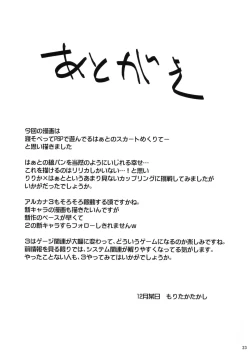 あとがき
今回の漫画は
寝そべってPSPで遊んでるはぁとのスカートめくりてー
と思い描きました
はぁとの縞パンを当然のようにいじれる幸せ…
これを描けるのはリリカしかいない…！と思い
りりか×はぁとというあまり見ないカップリングに挑戦してみましたが
いかがだったでしょうか。
アルカナ3もそろそろ稼動する頃ですかね。
新キャラの漫画も描きたいんですが
新作のペースが早くて
2の新キャラすらフォローしきれませんw
3はゲージ関連が大幅に変わって、どういうゲームになるのか楽しみですね。
前情報を見る限りでは、システム関連が解りやすくなってる気がします。
やったことない人も、3やってみてはいかがでしょうか。
12月某日　もりたかたかし
23